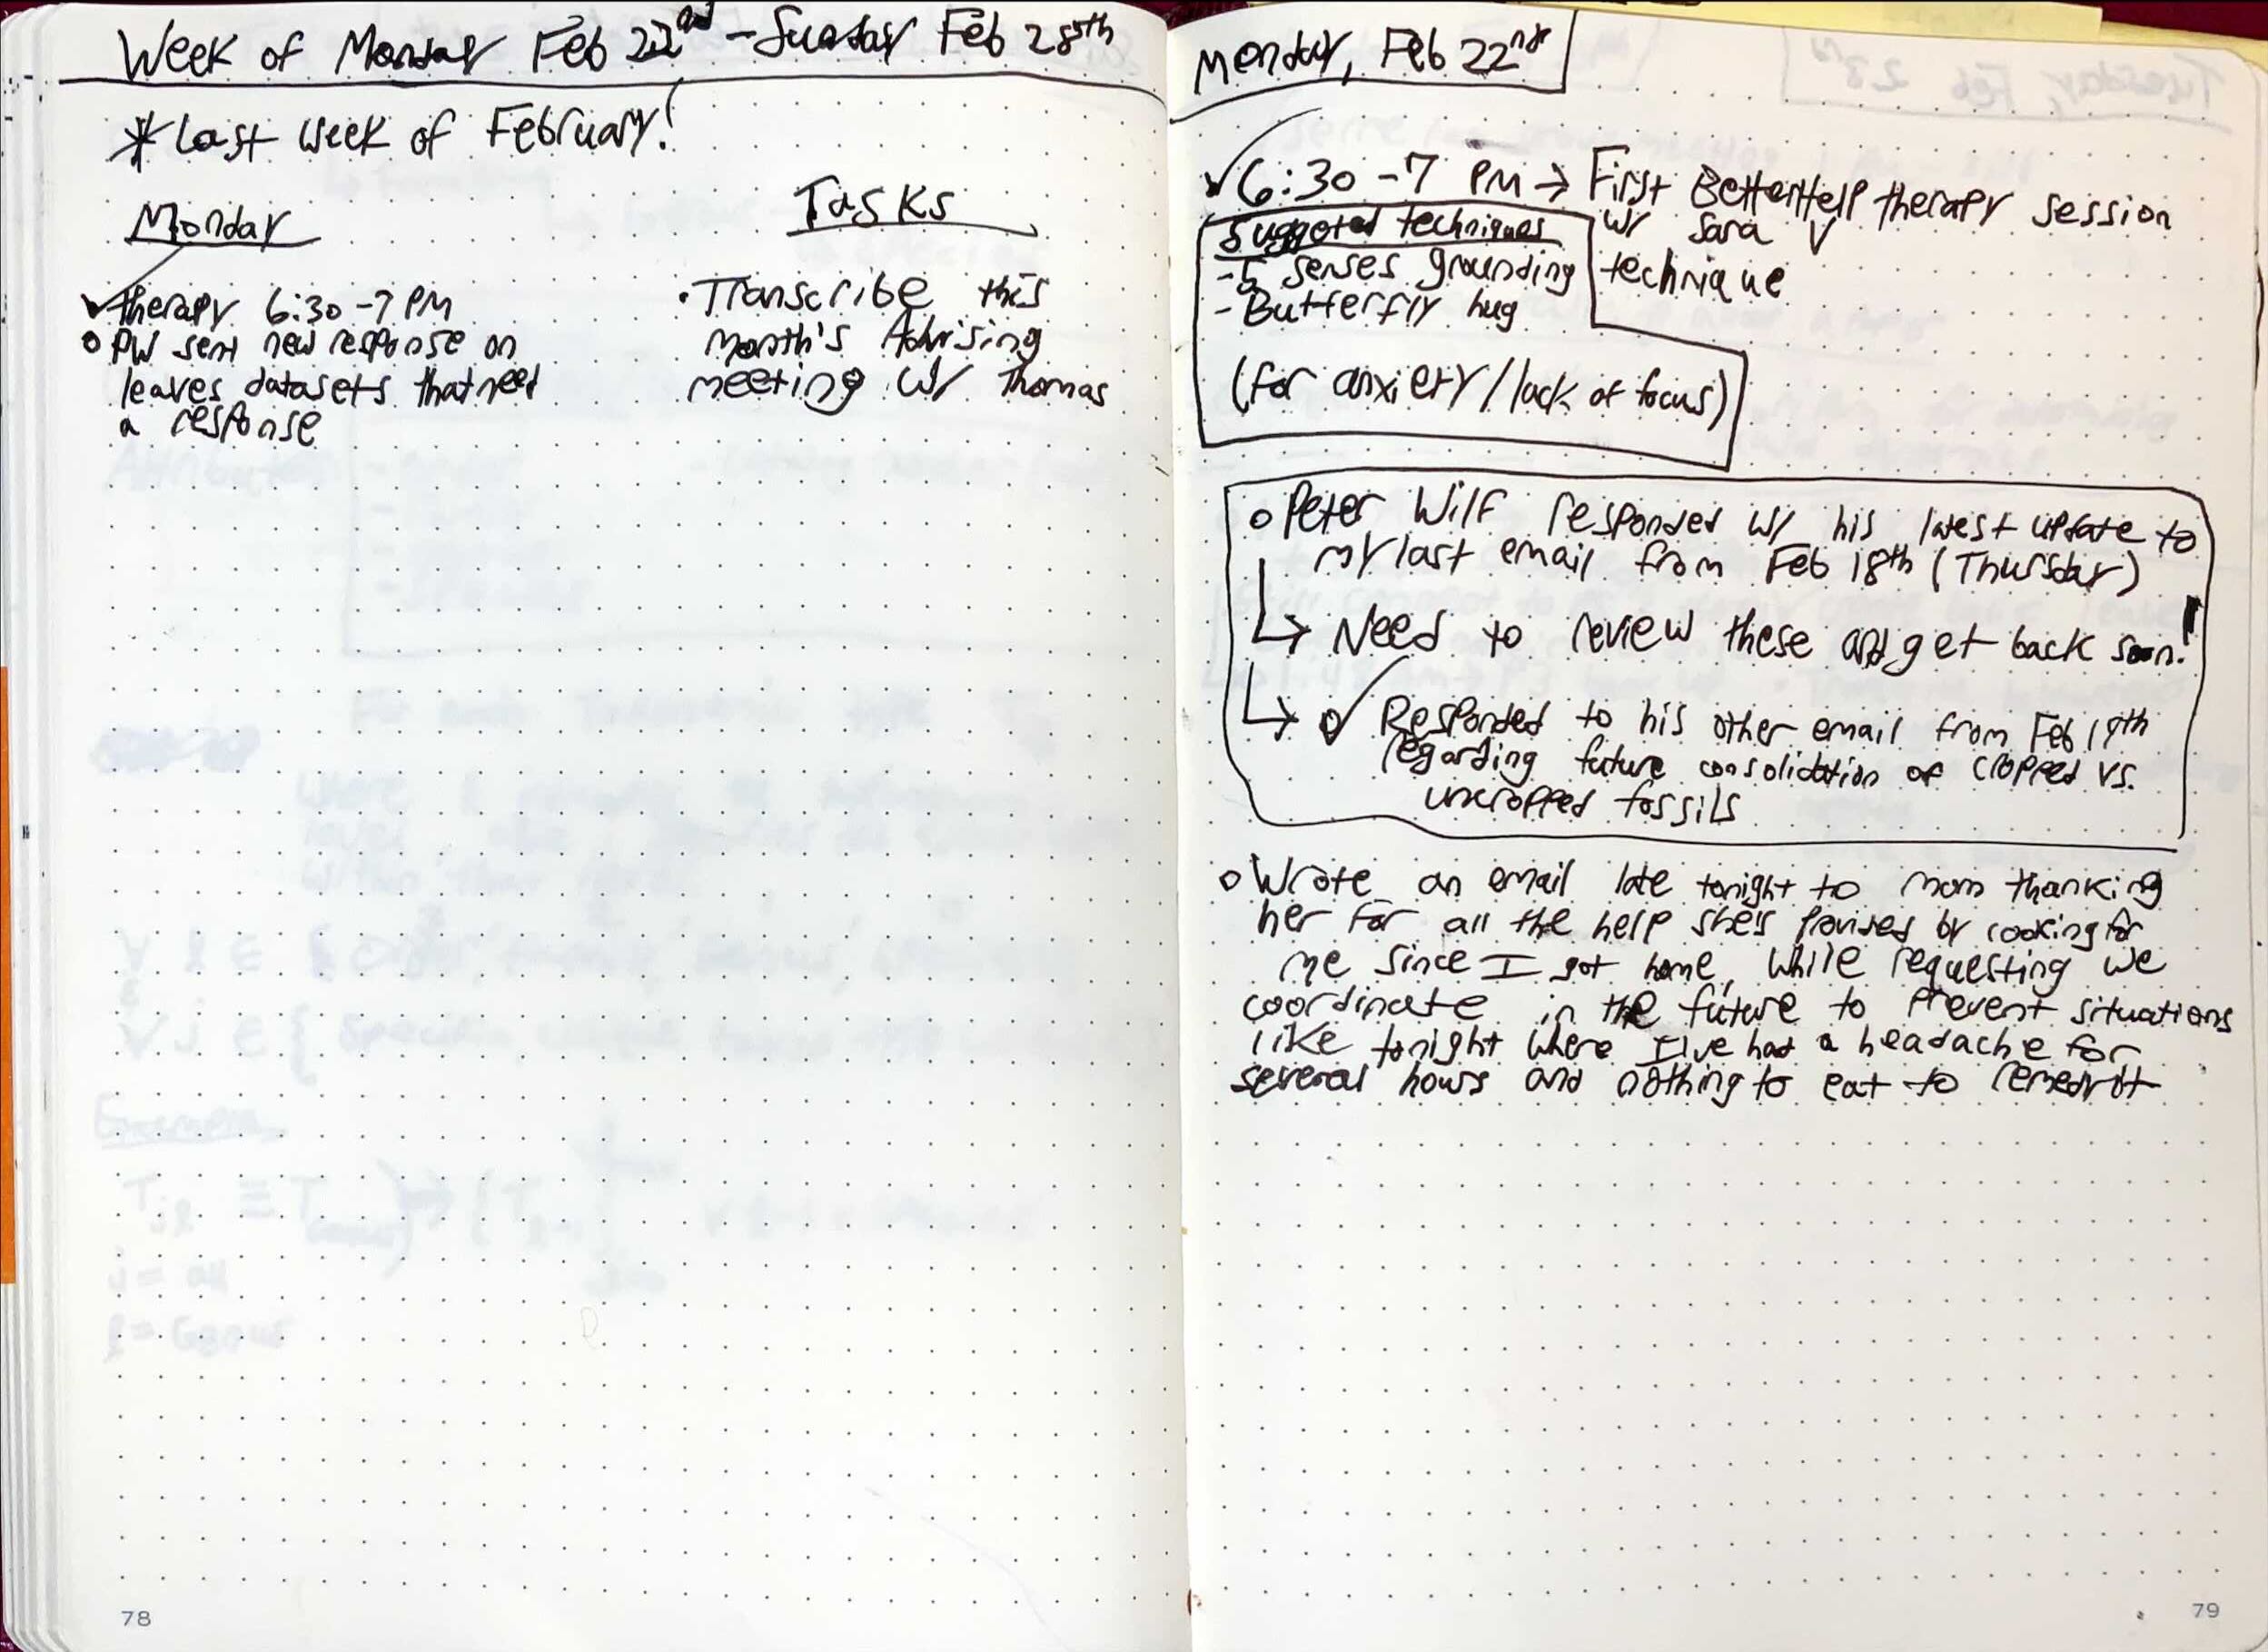 Week of Monday Feb 22nd - Sunday Feb 28th
* Last week of February!
Monday
✓ therapy 6:30 -7 PM
o PW sent new response on
leaves datasets that need
a response
Tasks
• Transcribe this
month's Advising
meeting w/ Thomas
78
Monday, Feb 22nd
✓ 6:30 -7 PM → First BetterHelp therapy session
w/ Sara V
Suggested techniques
- 5 senses grounding technique
- Butterfly hug
(for anxiety/lack of focus)
o Peter Wilf responded w/ his latest update to
my last email from Feb 18th (Thursday)
↳ Need to review these and get back soon!
↳ o ✓ Responded to his other email from Feb 19th
regarding future consolidation of cropped vs.
uncropped fossils
o Wrote an email late tonight to mom thanking
her for all the help she's provided by cooking for
me since I got home, while requesting we
coordinate in the future to prevent situations
like tonight where I've had a headache for
several hours and nothing to eat to remedy it
79
Tuesday, Feb 23rd